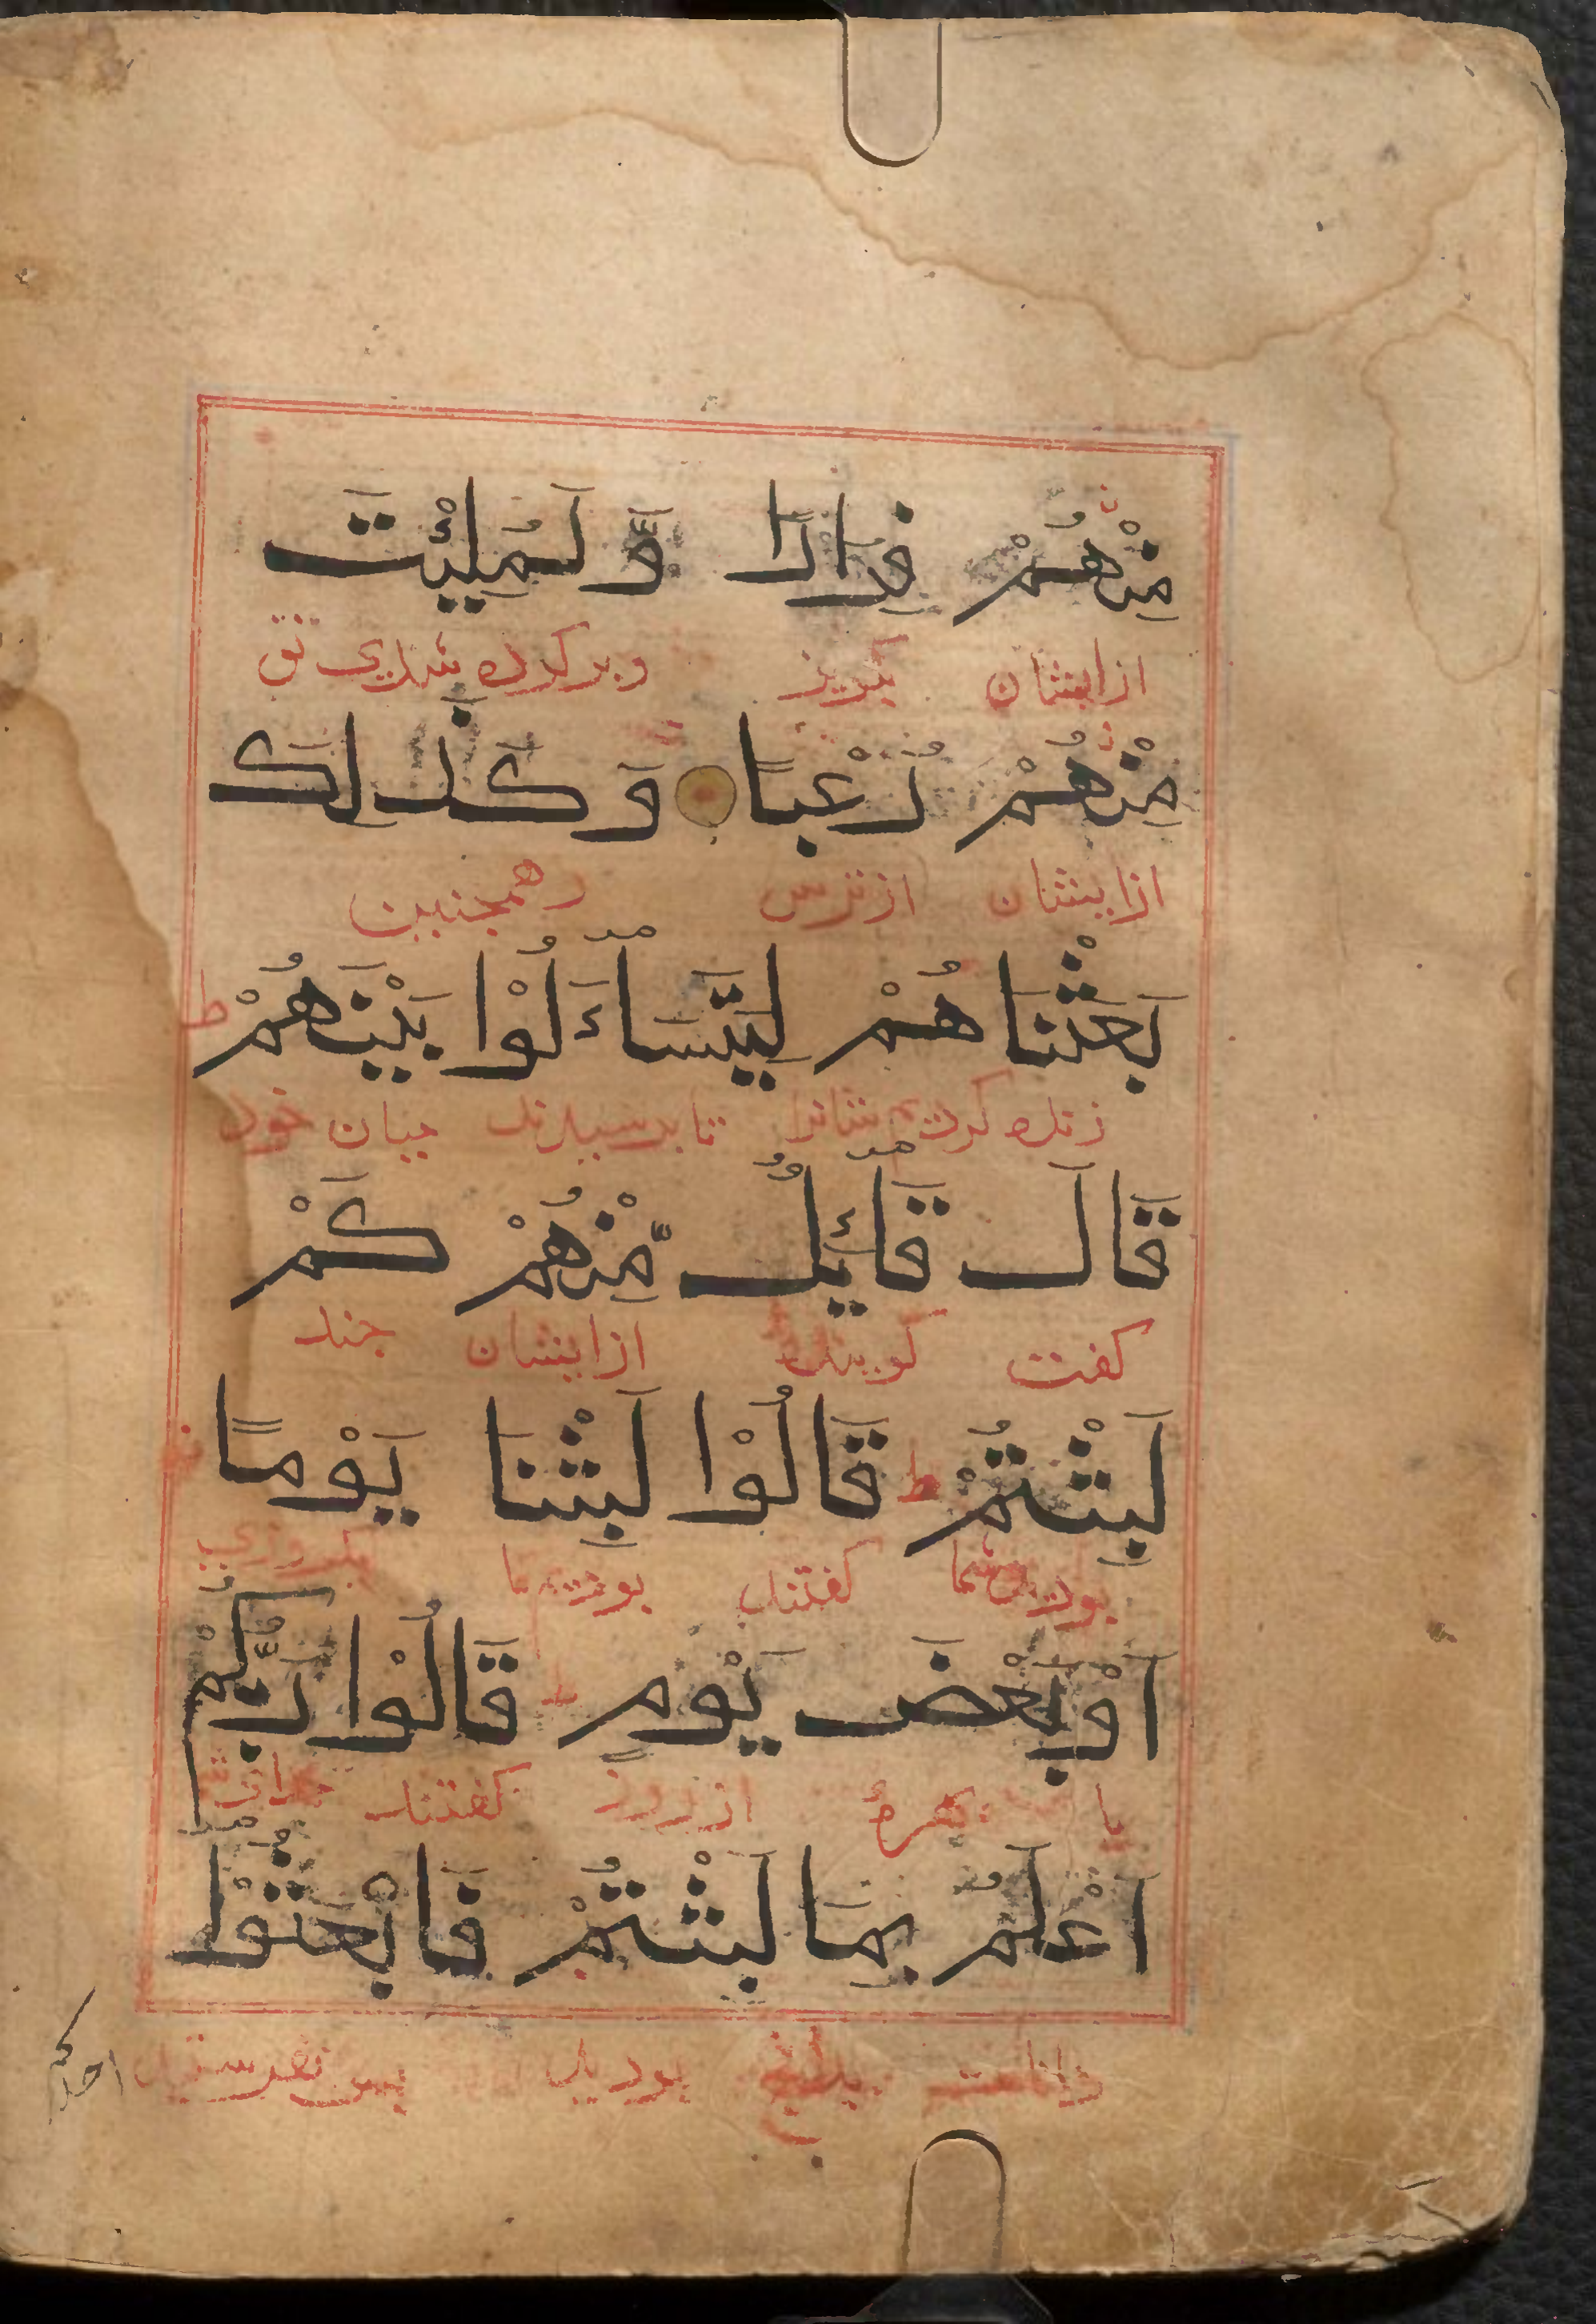 مِنْهُمْ فِرَارًا وَّلَمُلِئْتَ
ازایشان بگریز وبر کرده شدی تو
مِنْهُمْ رُعْبًا وَ كَذٰلِكَ
ازایشان ازترس وهمچنین
بَعَثْنَا هُمْ لِيَتَسَآءَلُوْا بَيْنَهُمْ ط
زنده کردیم شانرا تا بپرسیدند میان خود
قَالَ قَآئِلٌ مِّنْهُمْ كَمْ
کفت کوینده ازایشان چند
لَبِثْتُمْ ط قَالُوْا لَبِثْنَا يَوْمًا
بودید شما کفتند بودیم ما یکروزی
اَوْبَعْضَ يَوْمٍ ط قَالُوْا رَبُّكُمْ
یا ازروز کفتند
اَعْلَمُ بِمَا لَبِثْتُمْ فَابْعَثُوْا
بودید پس بفرستید
احدکم